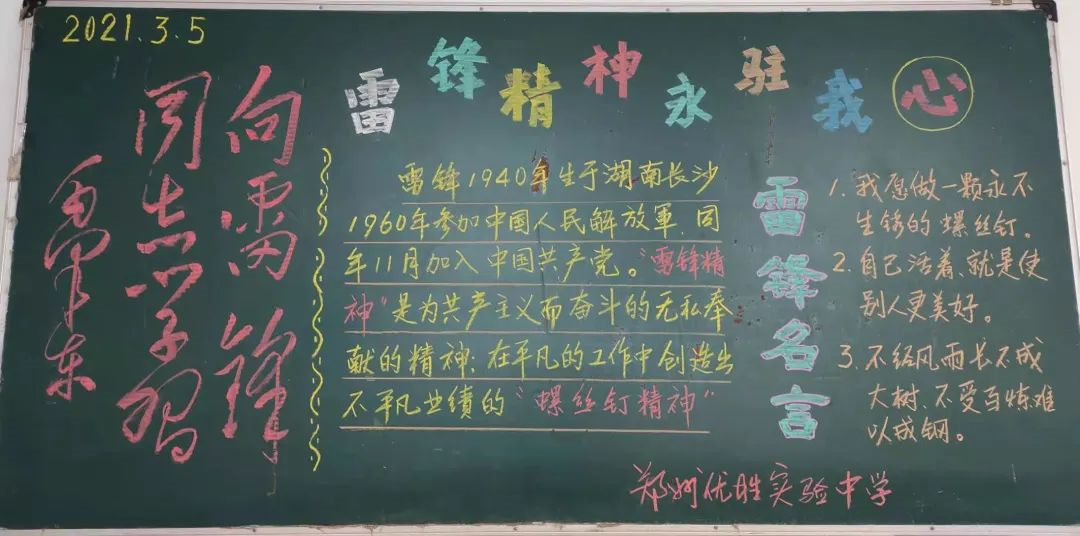 2021.3.5
雷锋精神永驻我心
向雷锋
同志学习
毛泽东
雷锋1940年生于湖南长沙
1960年参加中国人民解放軍.同
年11月加入中国共产党。"雷锋精
神"是为共产主义而奋斗的无私奉
献的精神;在平凡的工作中创造出
不平凡业绩的"螺丝钉精神"
雷锋名言
1. 我愿做一颗永不
生锈的螺丝钉。
2. 自己活着、就是使
别人更美好。
3. 不经风雨长不成
大树.不受百炼难
以成钢。
郑州优胜实验中学